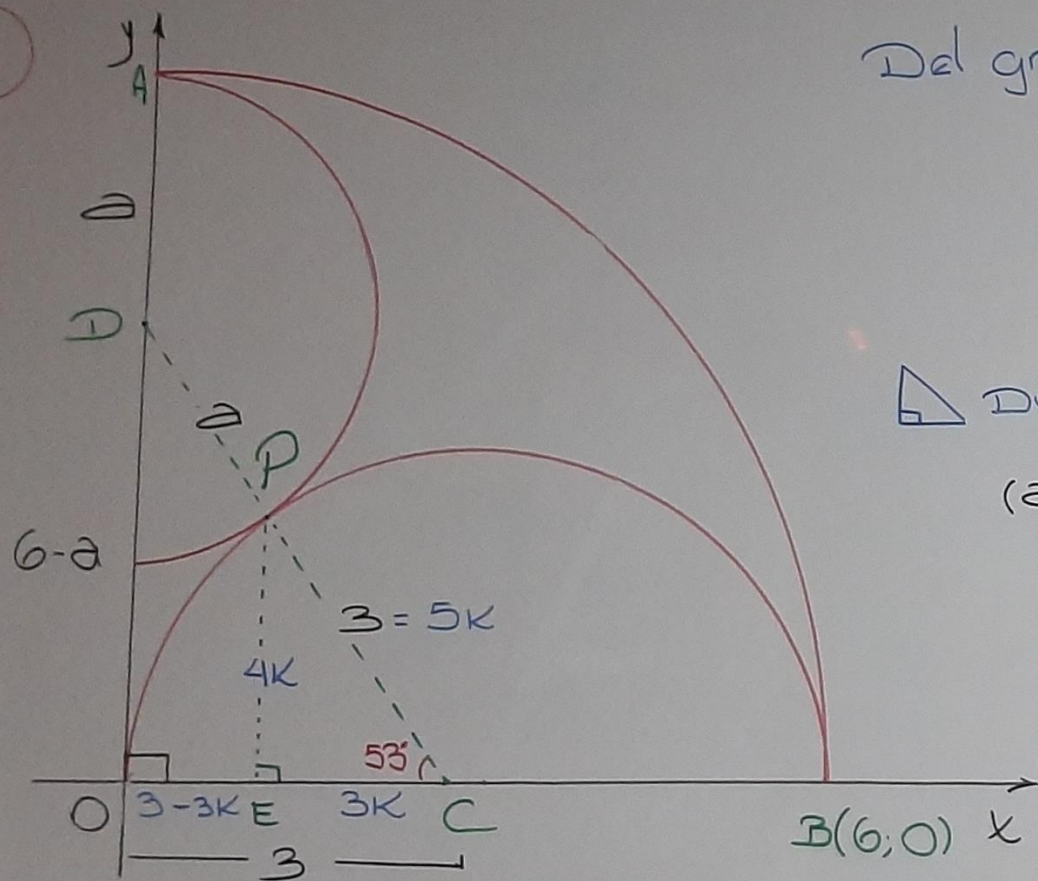 y
A
Del
a
D
a
P
6-a
3 = 5K
4K
53°
O 3-3K E 3K C B(6;0) x
3